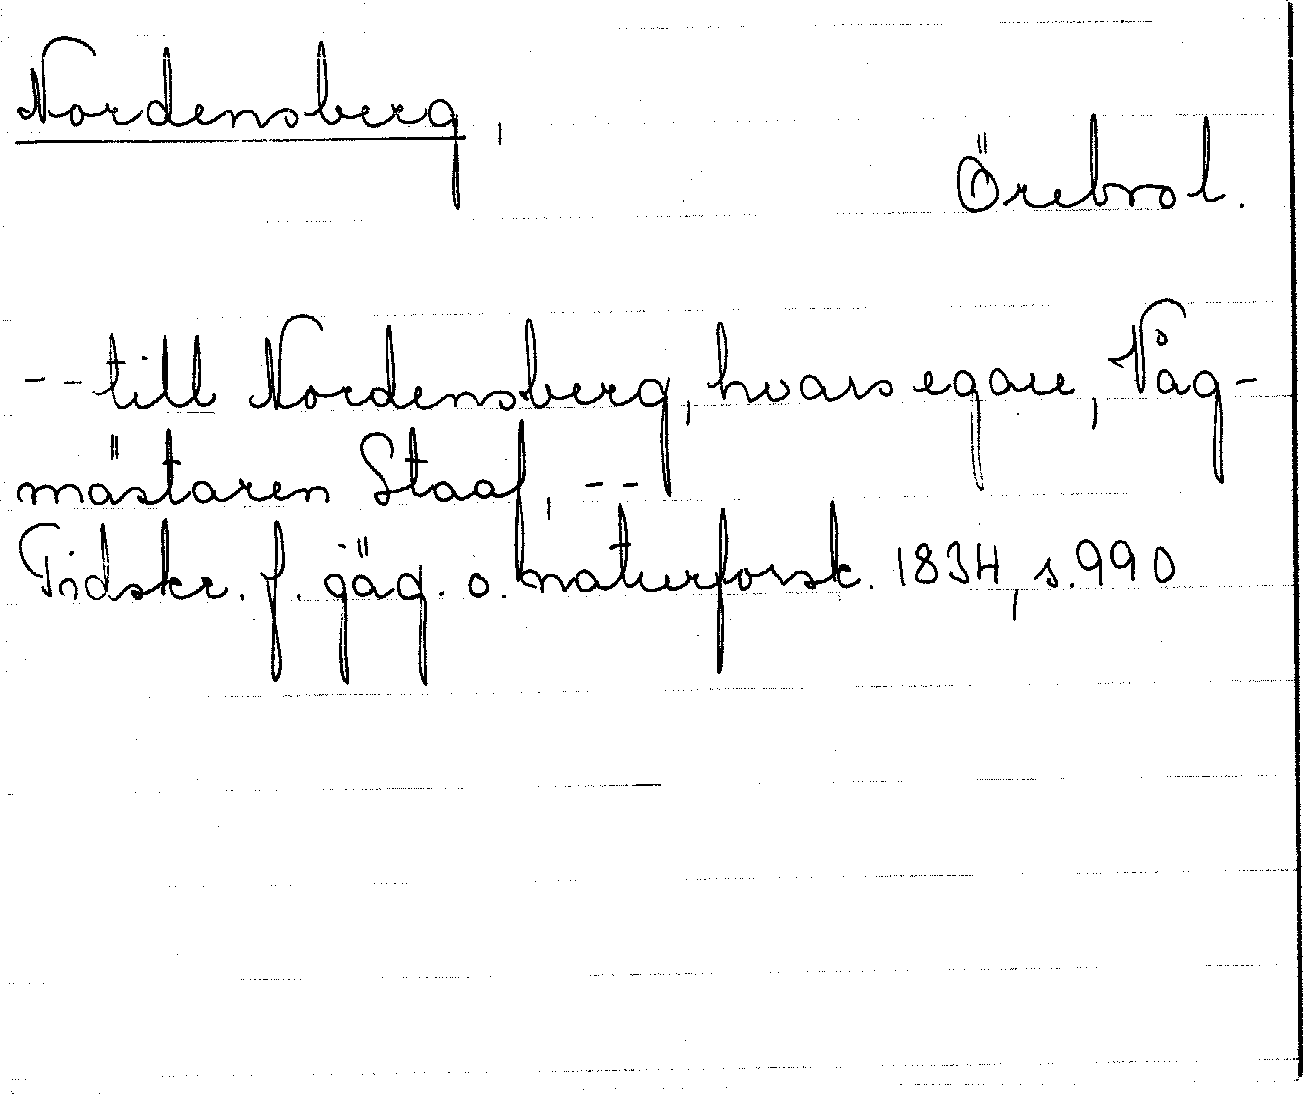 Nordensberg,
Örebro l.
-- till Nordensberg, hvars egare, Våg-
mästaren Staaf, --
Tidskr. f. jäg. o. naturforsk. 1834, s. 990